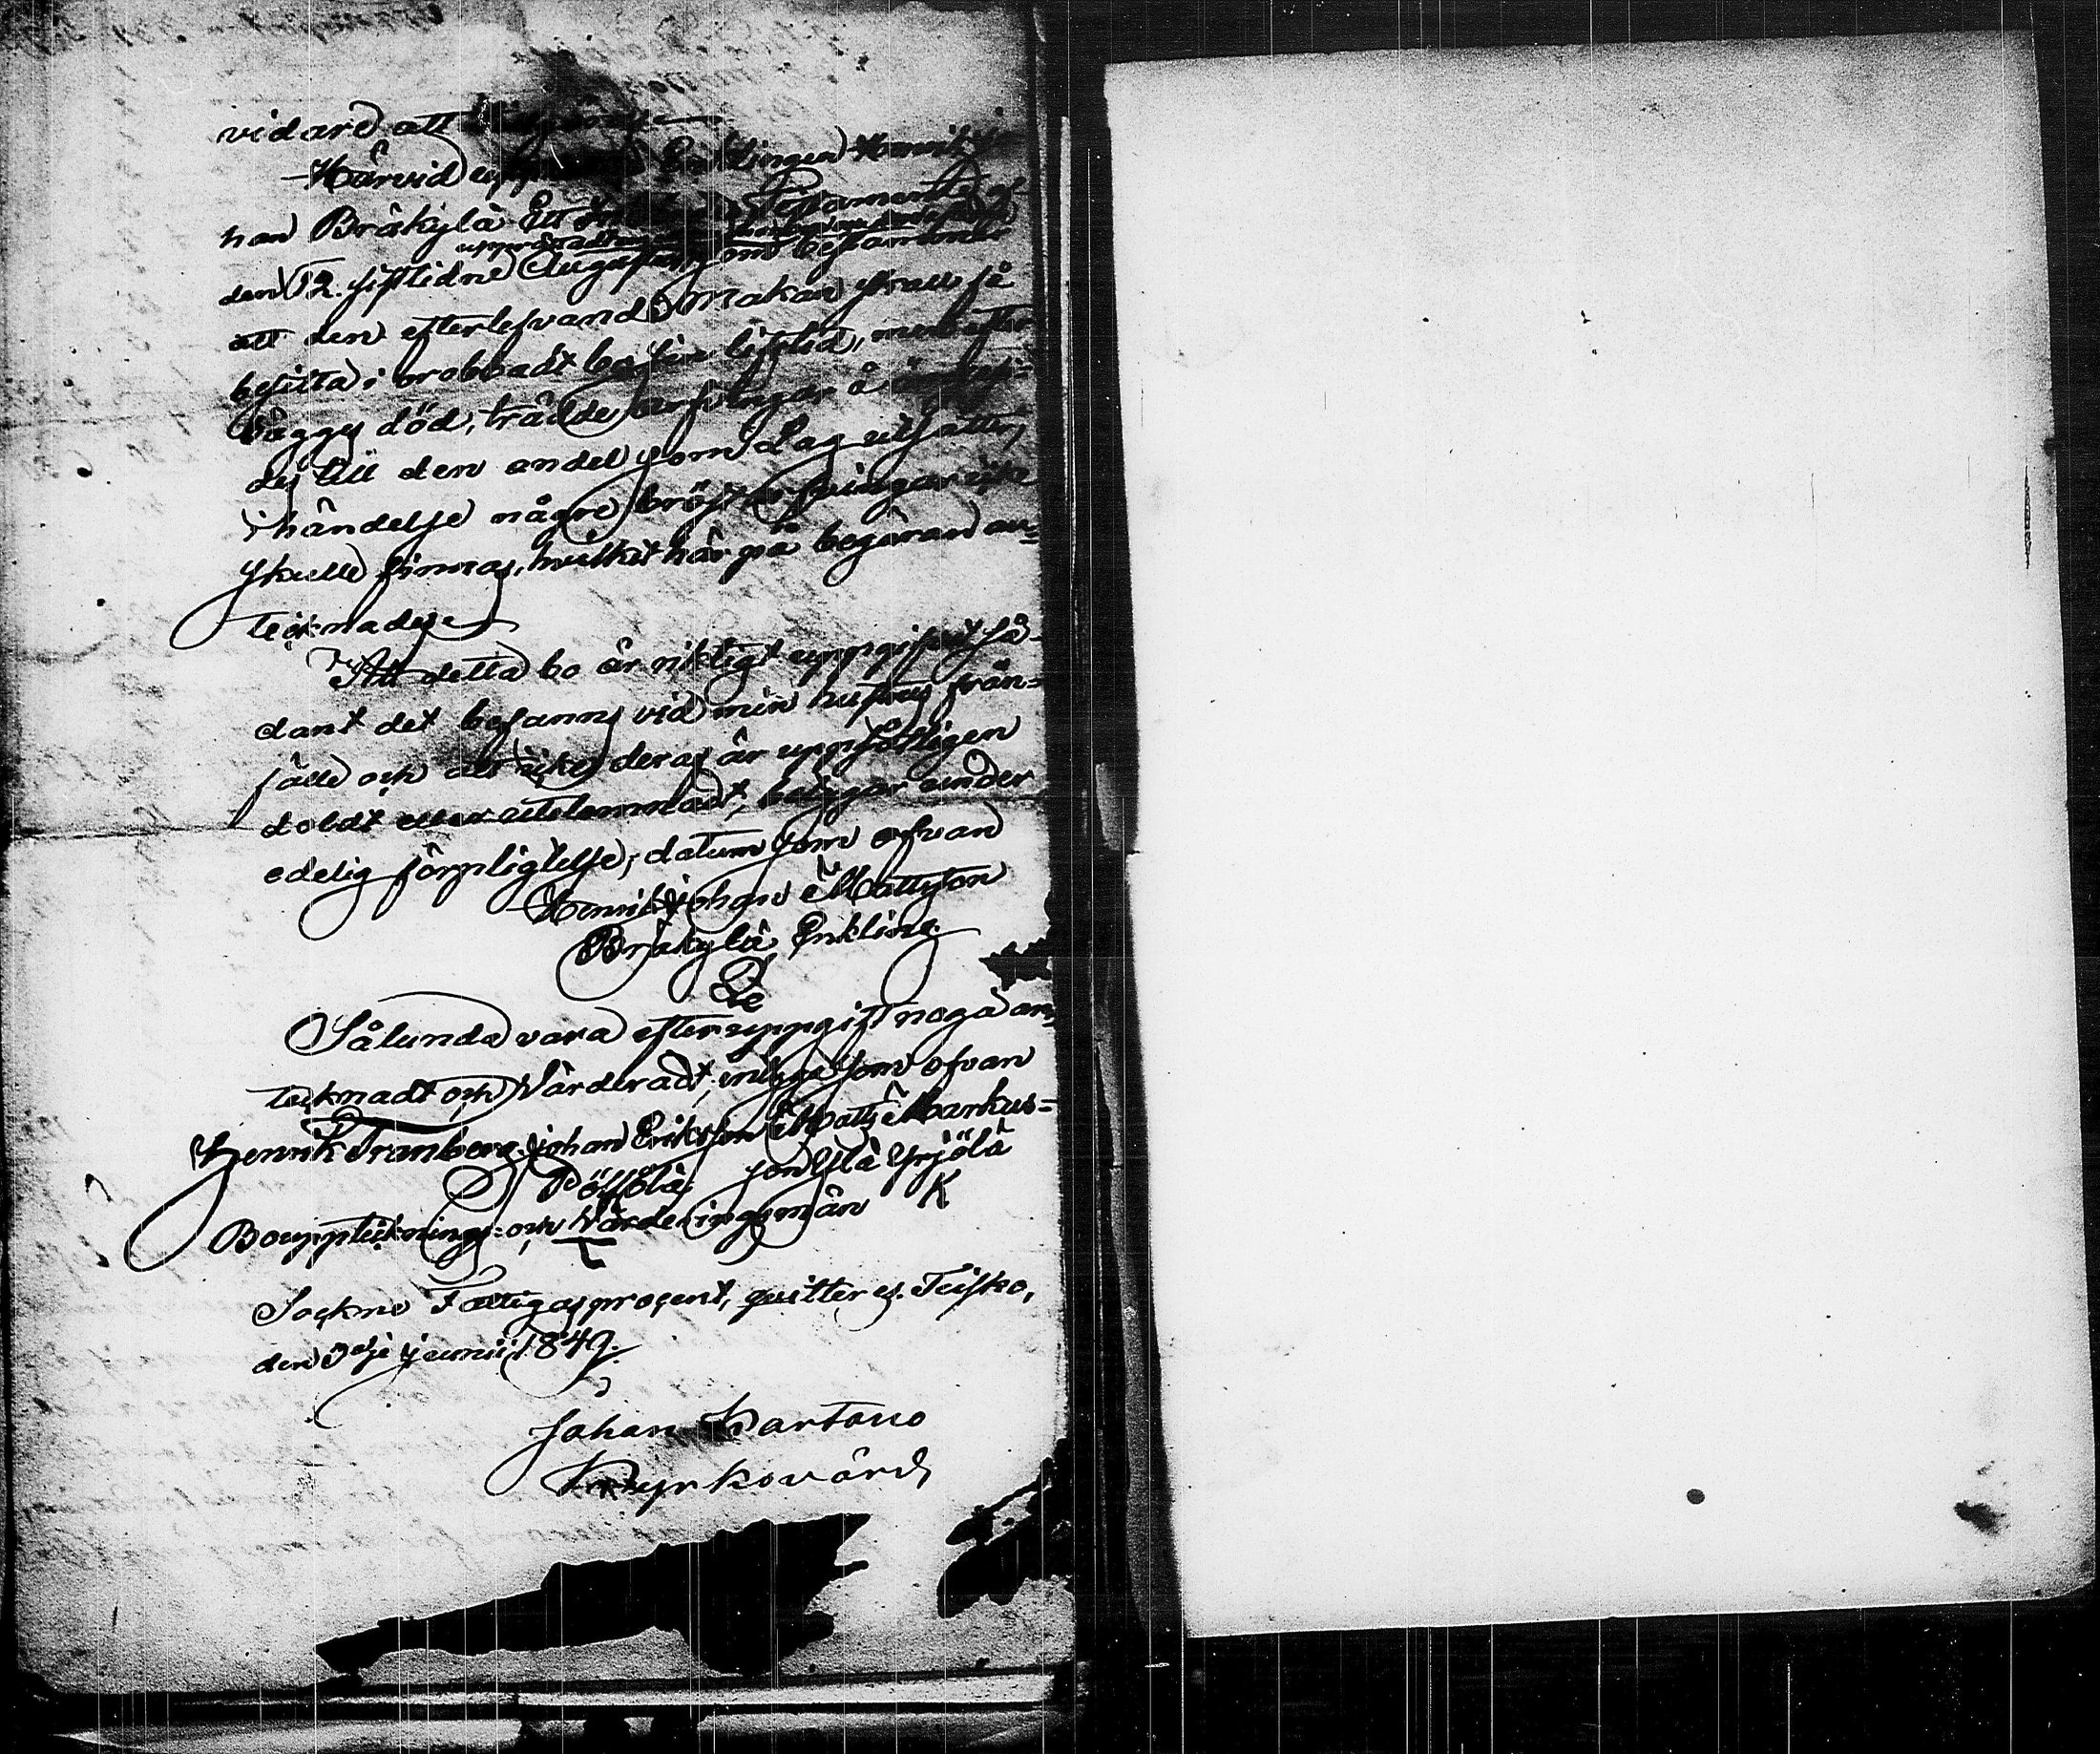 vidare att
Härvid Enklingen Henrik Jo-
han Bräkylä Ett Testamente af
den 12 sistlidne Augusti, som bestämmer
upprättadt
att den efterlefvande Makan skall få
besitta i orobbadt bo sin lifstid, men efter
bägges död, trädde arfvingar å ömse si-
des till den andel som Lag utsätter,
i händelse någre bröstarfvingar icke
skulle finnas, hvilket här på begäran an-
tecknades.
Att detta bo är riktigt uppgifvit så-
dant det befanns vid min hustrus från-
fälle och att icke deraf är uppsåtligen
doldt eller utelemnadt, betygar under
edelig förpligtelse, datum som ofvan
Henrik Johan Mattsson
Bräkylä Enkling.
Sålunda vara efter uppgift noga an-
tecknadt och Värderadt, intyga som ofvan
Henrik Tranberg. Johan Eriksson Matts Markus-
Pössölä son Ylä Yrjölä
K
Boupptecknings- och Värderingsmän
Sockne Fattigas procent, quitteres. Teisko,
den 3dje junii 1849.
Johan Kartano
Kyrkovärd